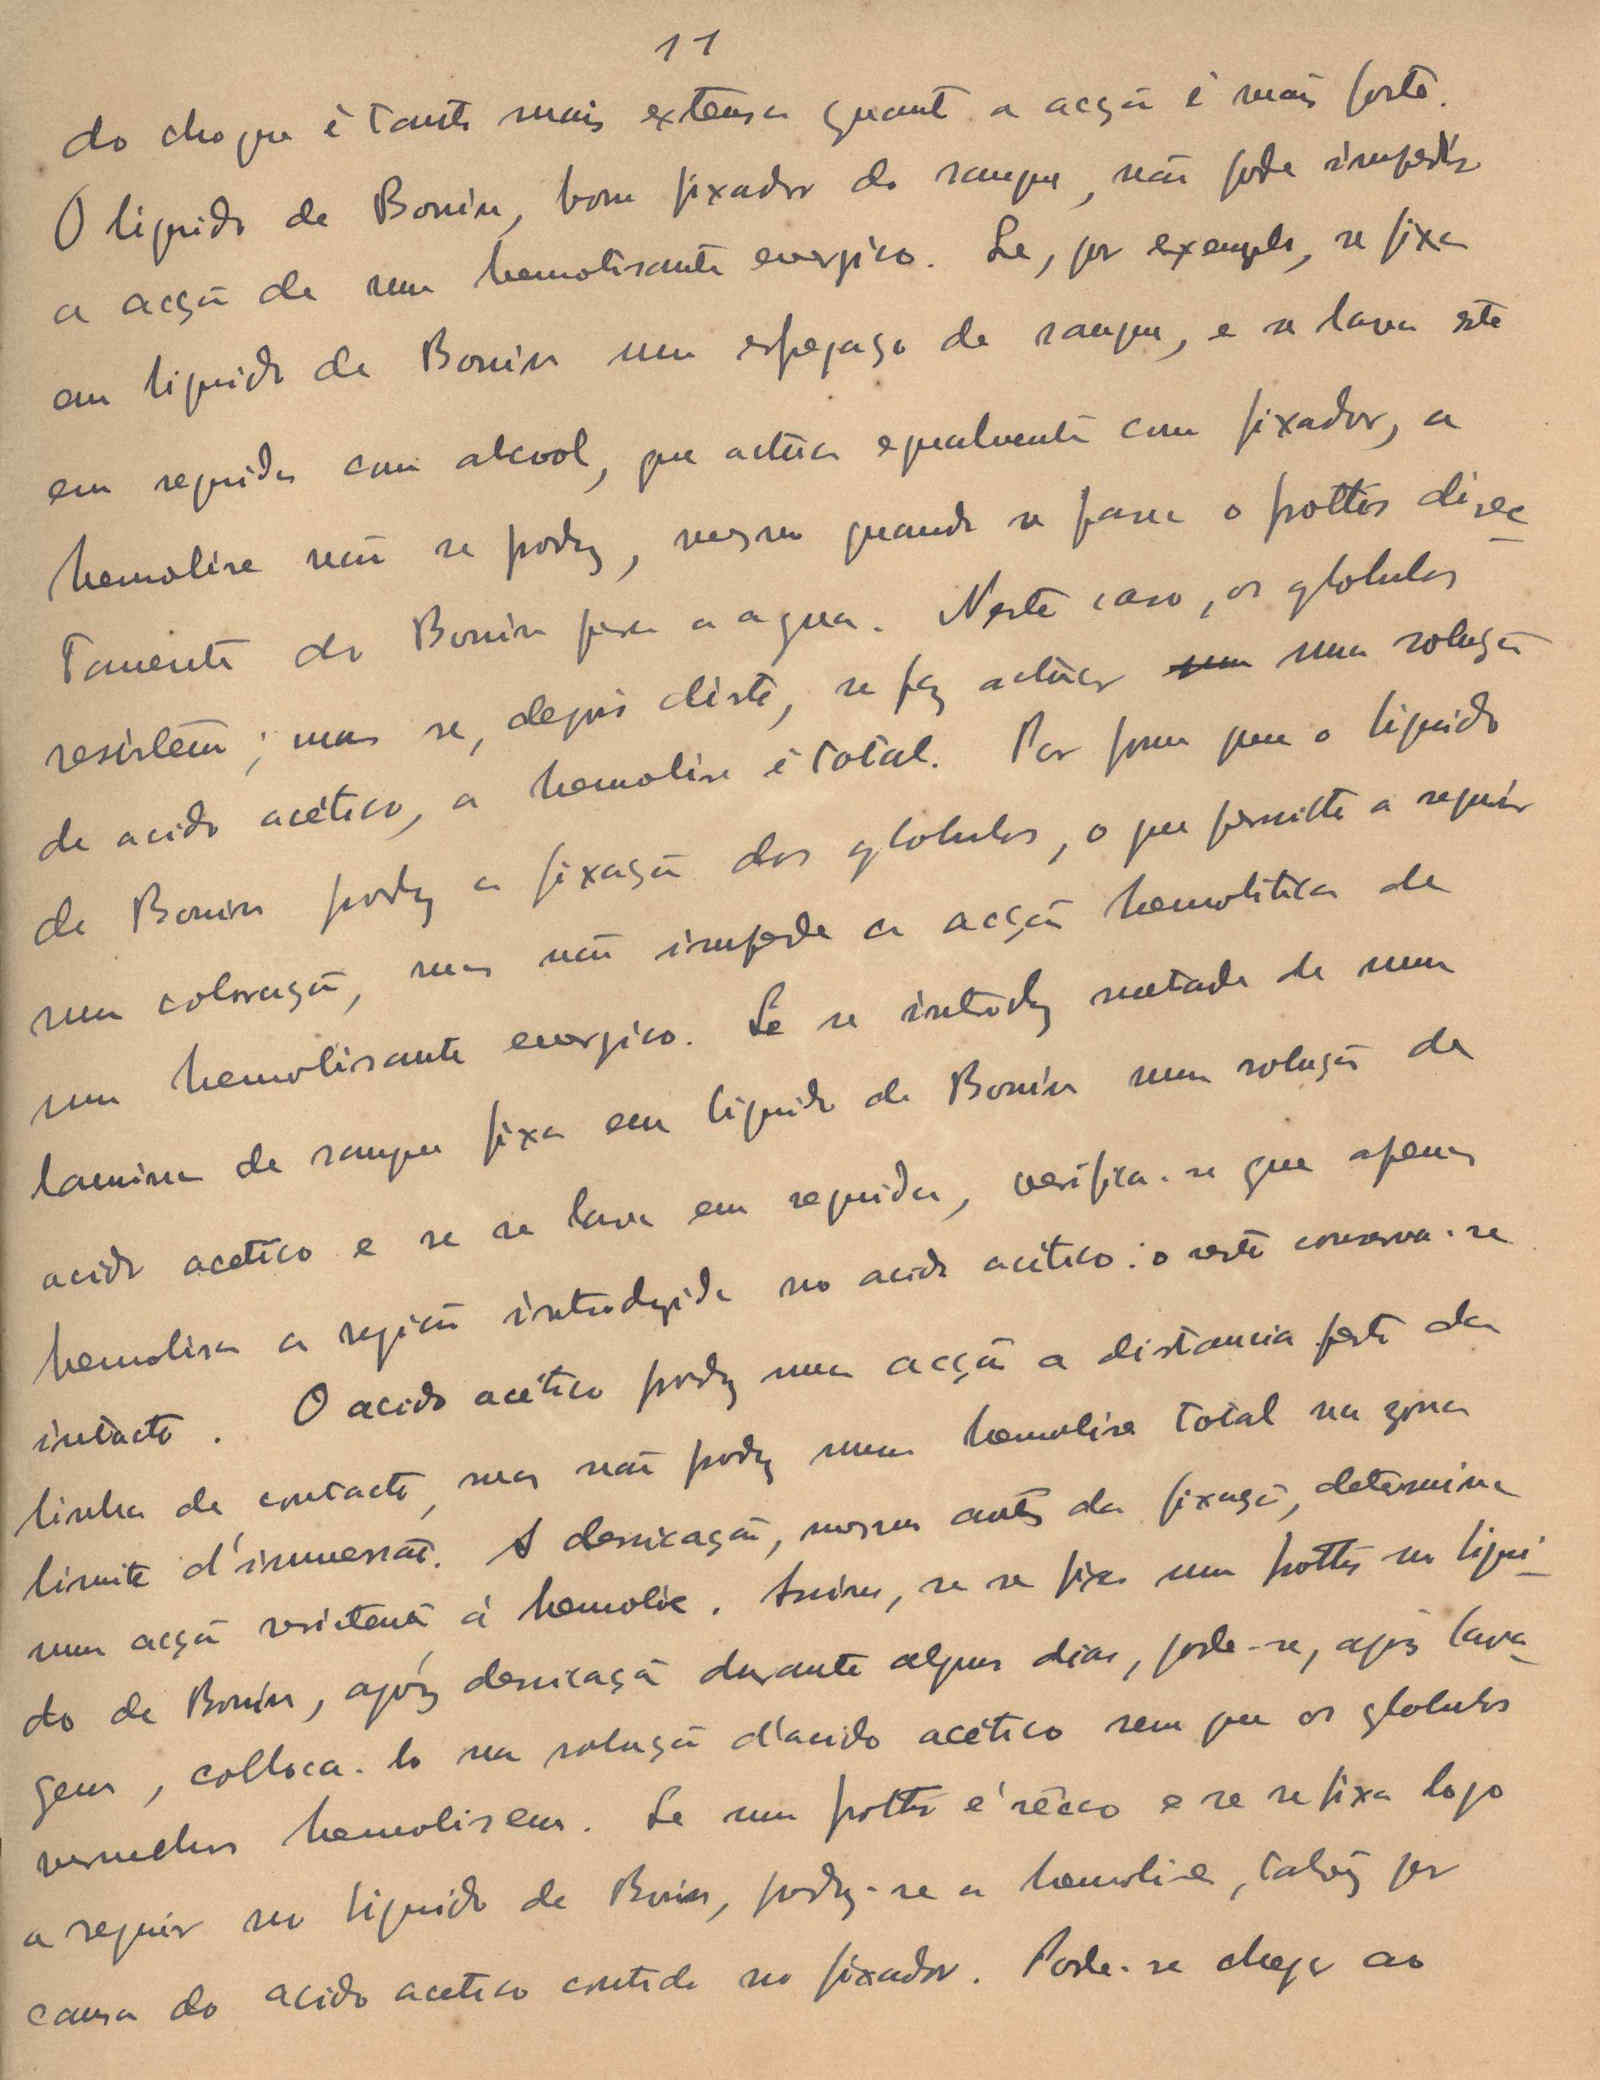 11
do choque é tanto mais extensa quanto a acção é mais forte.
O liquido de Bouin, bom fixador do sangue, não pode impedir
a acção de um hemolisante energico. Se, por exemplo, se fixa
em liquido de Bouin um esfregaço de sangue, e se lava este
em seguida com alcool, que actúa egualmente com fixador, a
hemolise não se produz, mesmo quando se passa o frottis direc-
tamente do Bouin para a agua. Neste caso, os globulos
resistem; mas se, depois disto, se faz actuar uma solução
de acido acético, a hemolise é total. Por forma que o liquido
de Bouin produz a fixação dos globulos, o que permitte a seguir
uma coloração, mas não impede a acção hemolitica de
um hemolisante energico. Se se introduz metade de uma
lamina de sangue fixa em liquido de Bouin numa solução de
acido acetico e se se lava em seguida, verifica-se que apenas
hemolisa a região introduzida no acido acético: o resto conserva-se
intacto. O acido acético produz uma acção a distancia perto da
linha de contacto, mas não produz uma hemolise total na zona
limite d'immersão. A dessicação, mesmo antes da fixação, determina
uma acção resistente á hemolise. Assim, se se fixa um frottis no liqui-
do de Bouin, após dessicação durante alguns dias, pode-se, após lava-
gem, colloca-lo na solução d'acido acético sem que os globulos
vermelhos hemolisem. Se um frottis é sêcco e se se fixa logo
a seguir no liquido de Bouin, produz-se a hemolise, talvez por
causa do acido acetico contido no fixador. Pode-se chegar ao